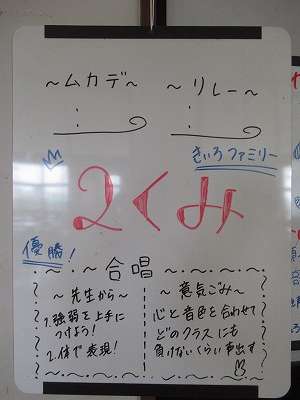 ～ムカデ～
～リレー～
きいろファミリー
2くみ
優勝!
～・～合唱～・～・～・～
～先生から～
1.強弱を上手に
つけよう!
2.体で表現!
～意気ごみ～
心と音色を合わせて
どのクラスにも
負けないくらい声出す